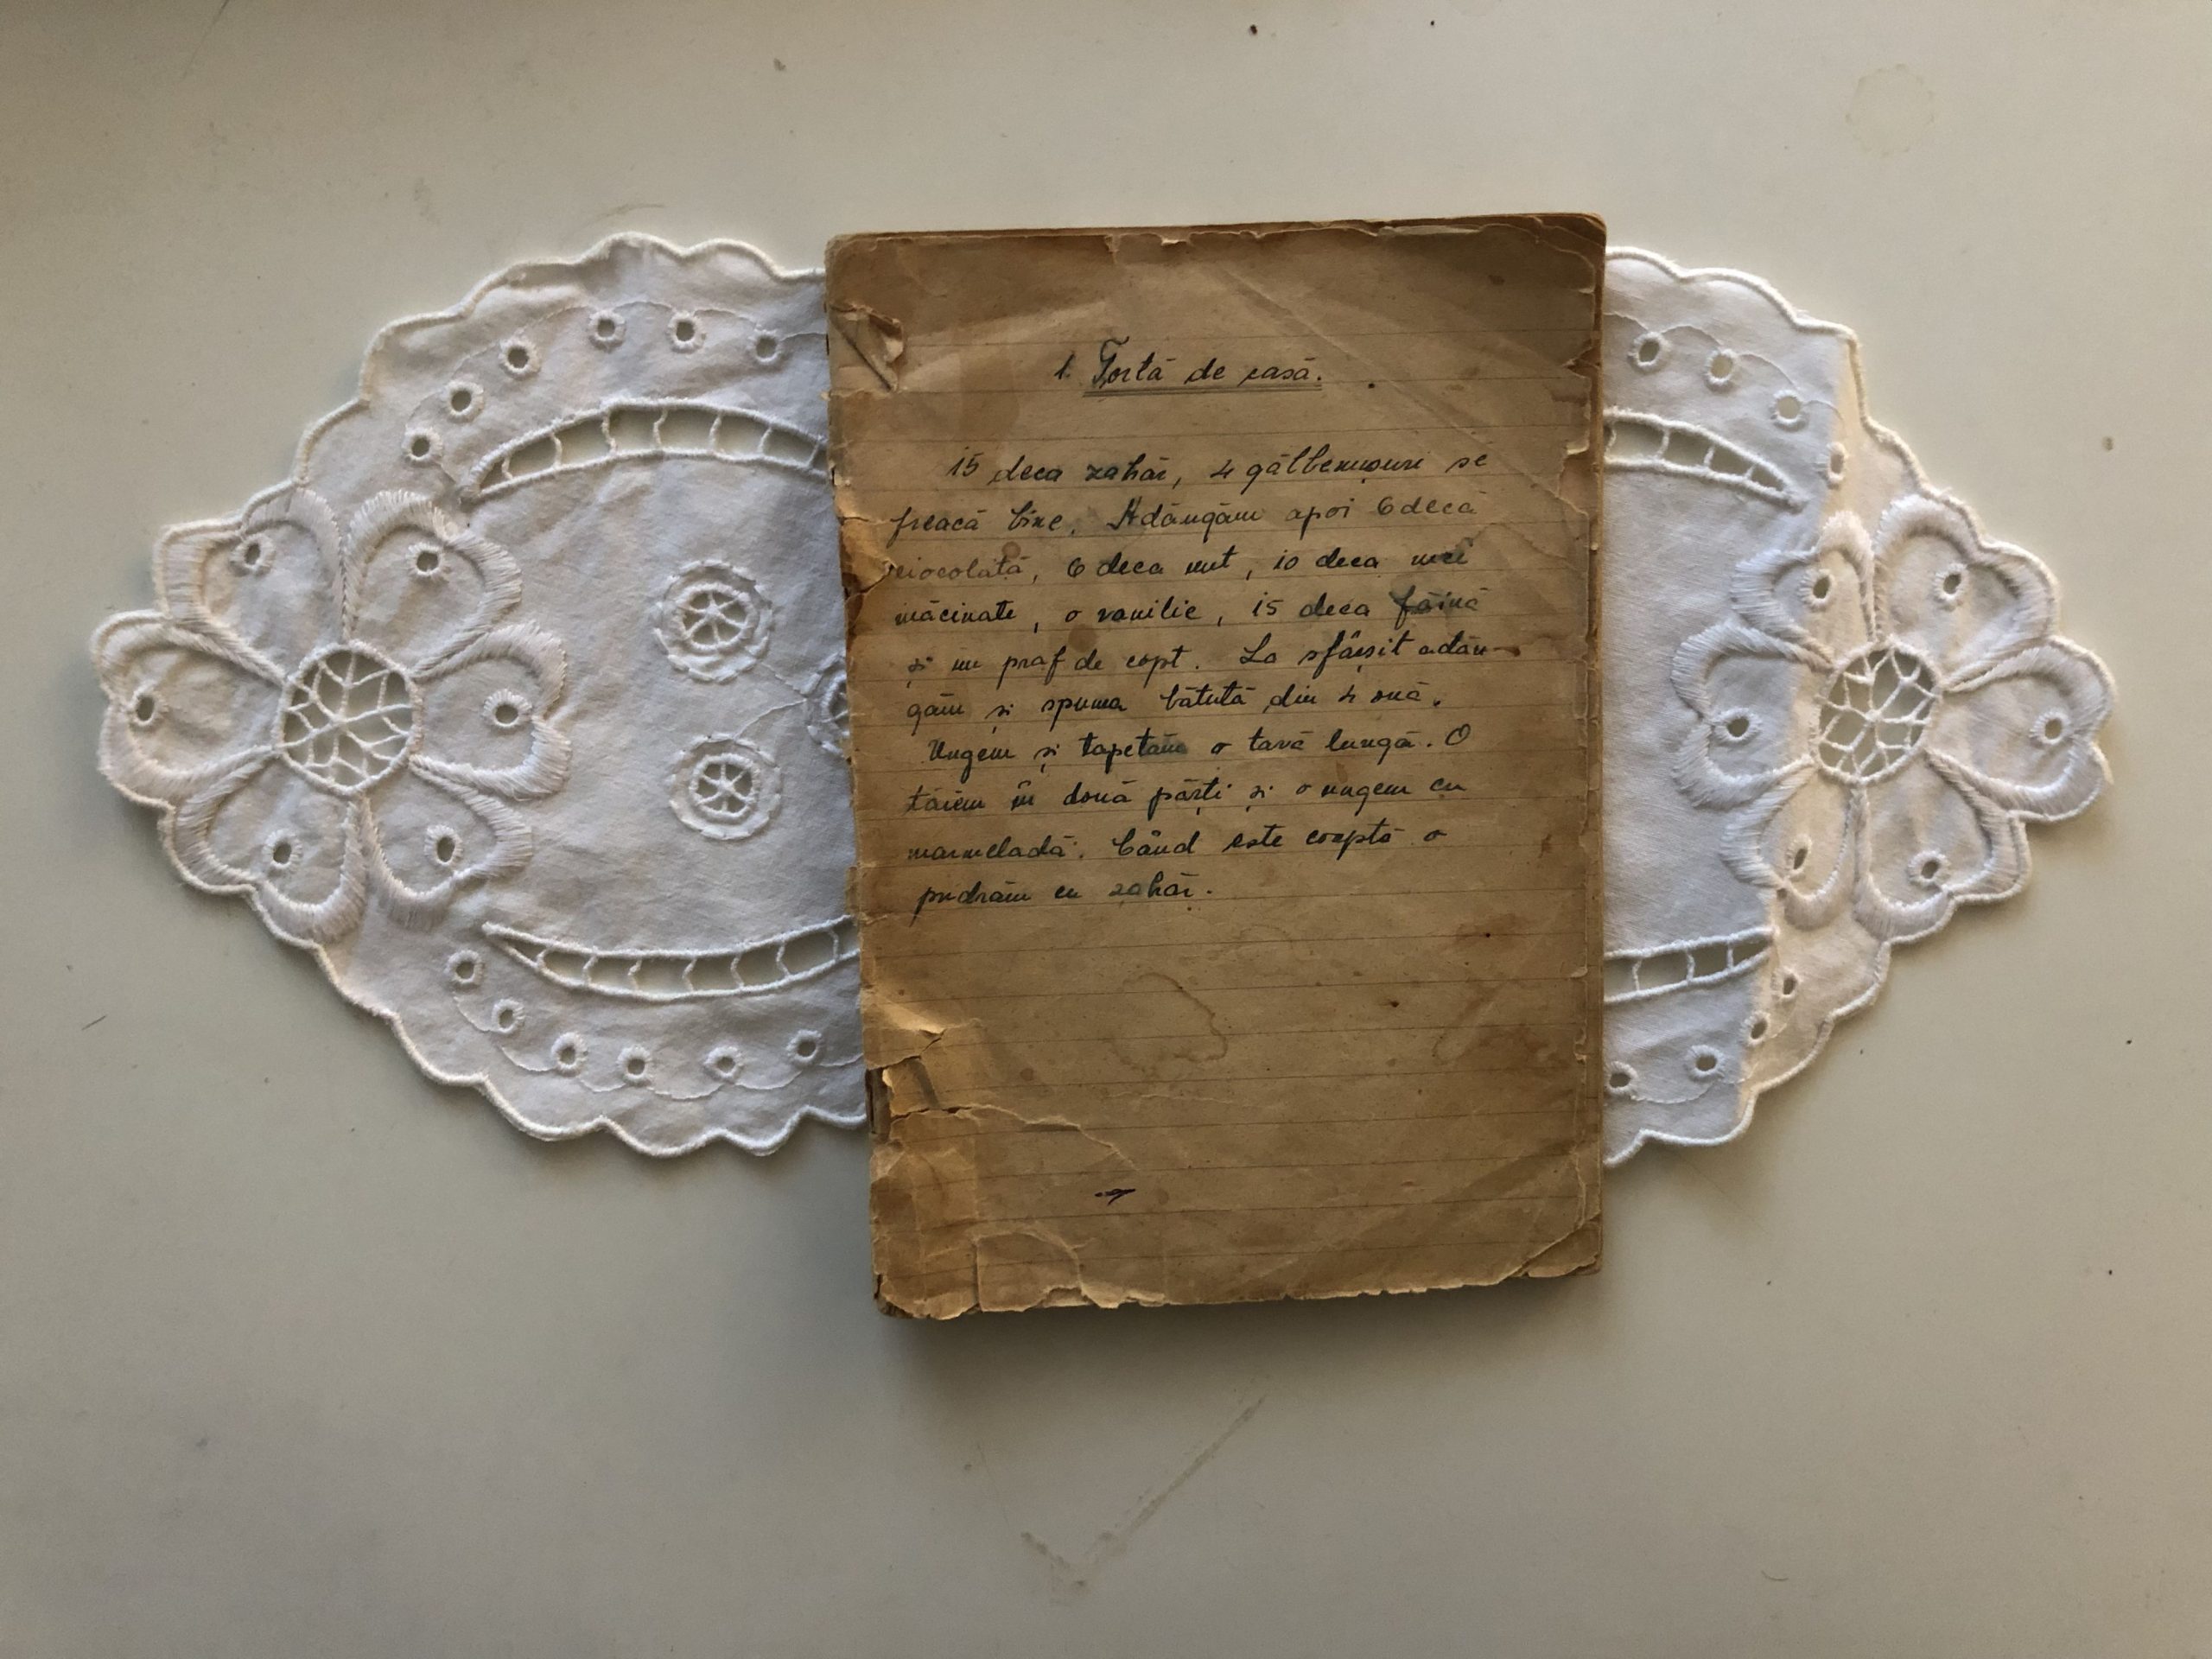 1. Tortă de casă.
15 deca zahăr, 4 gălbenușuri se
freacă bine. Adăugăm apoi 6 decă
ciocolată, 6 deca unt, 10 deca nuci
măcinate, o vanilie, 15 deca făină
și un praf de copt. La sfârșit adău-
găm și spuma bătută din 4 ouă.
Ungem și tapetăm o tavă lungă. O
tăiem în două părți și o ungem cu
marmeladă. Când este coaptă o
pudrăm cu zahăr.